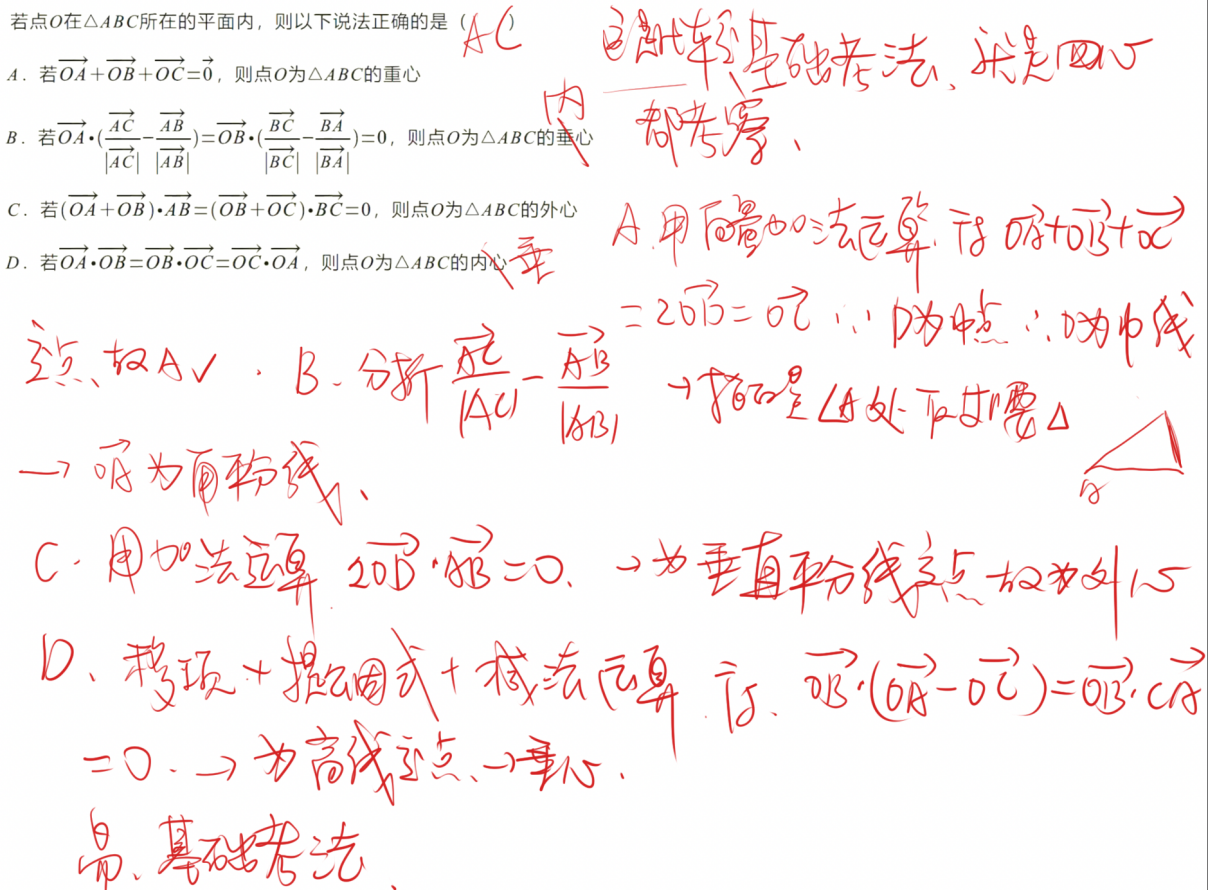 若点O在△ABC所在的平面内，则以下说法正确的是（ AC ）
A．若$\overrightarrow{OA}+\overrightarrow{OB}+\overrightarrow{OC}=\vec{0}$，则点O为△ABC的重心
B．若$\overrightarrow{OA}\cdot(\frac{\overrightarrow{AC}}{|\overrightarrow{AC}|}-\frac{\overrightarrow{AB}}{|\overrightarrow{AB}|})=\overrightarrow{OB}\cdot(\frac{\overrightarrow{BC}}{|\overrightarrow{BC}|}-\frac{\overrightarrow{BA}}{|\overrightarrow{BA}|})=0$，则点O为△ABC的垂心
内
C．若$(\overrightarrow{OA}+\overrightarrow{OB})\cdot\overrightarrow{AB}=(\overrightarrow{OB}+\overrightarrow{OC})\cdot\overrightarrow{BC}=0$，则点O为△ABC的外心
D．若$\overrightarrow{OA}\cdot\overrightarrow{OB}=\overrightarrow{OB}\cdot\overrightarrow{OC}=\overrightarrow{OC}\cdot\overrightarrow{OA}$，则点O为△ABC的内心
垂
基础考法、就是四心
都考察、
A.用向量加法运算.得$\overrightarrow{OA}+\overrightarrow{OB}+\overrightarrow{OC}$
$=2\overrightarrow{OD}=\overrightarrow{OC}$ ∵D为中点∴D为中线
交点、故A✓. B.分析$\frac{\overrightarrow{AC}}{|AC|}-\frac{\overrightarrow{AB}}{|AB|}$→指的是∠A处取等腰△
A
→$\overrightarrow{OA}$为角平分线、
C.用加法运算 $2\overrightarrow{OD}\cdot\overrightarrow{AB}=0$.→为垂直平分线交点故为外心
D、移项+提公因式+减法运算.得、$\overrightarrow{OB}\cdot(\overrightarrow{OA}-\overrightarrow{OC})=\overrightarrow{OB}\cdot\overrightarrow{CA}$
=0.→为高线交点、→垂心.
易、基础考法、